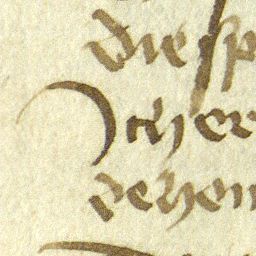 die sp
Jther
dehen